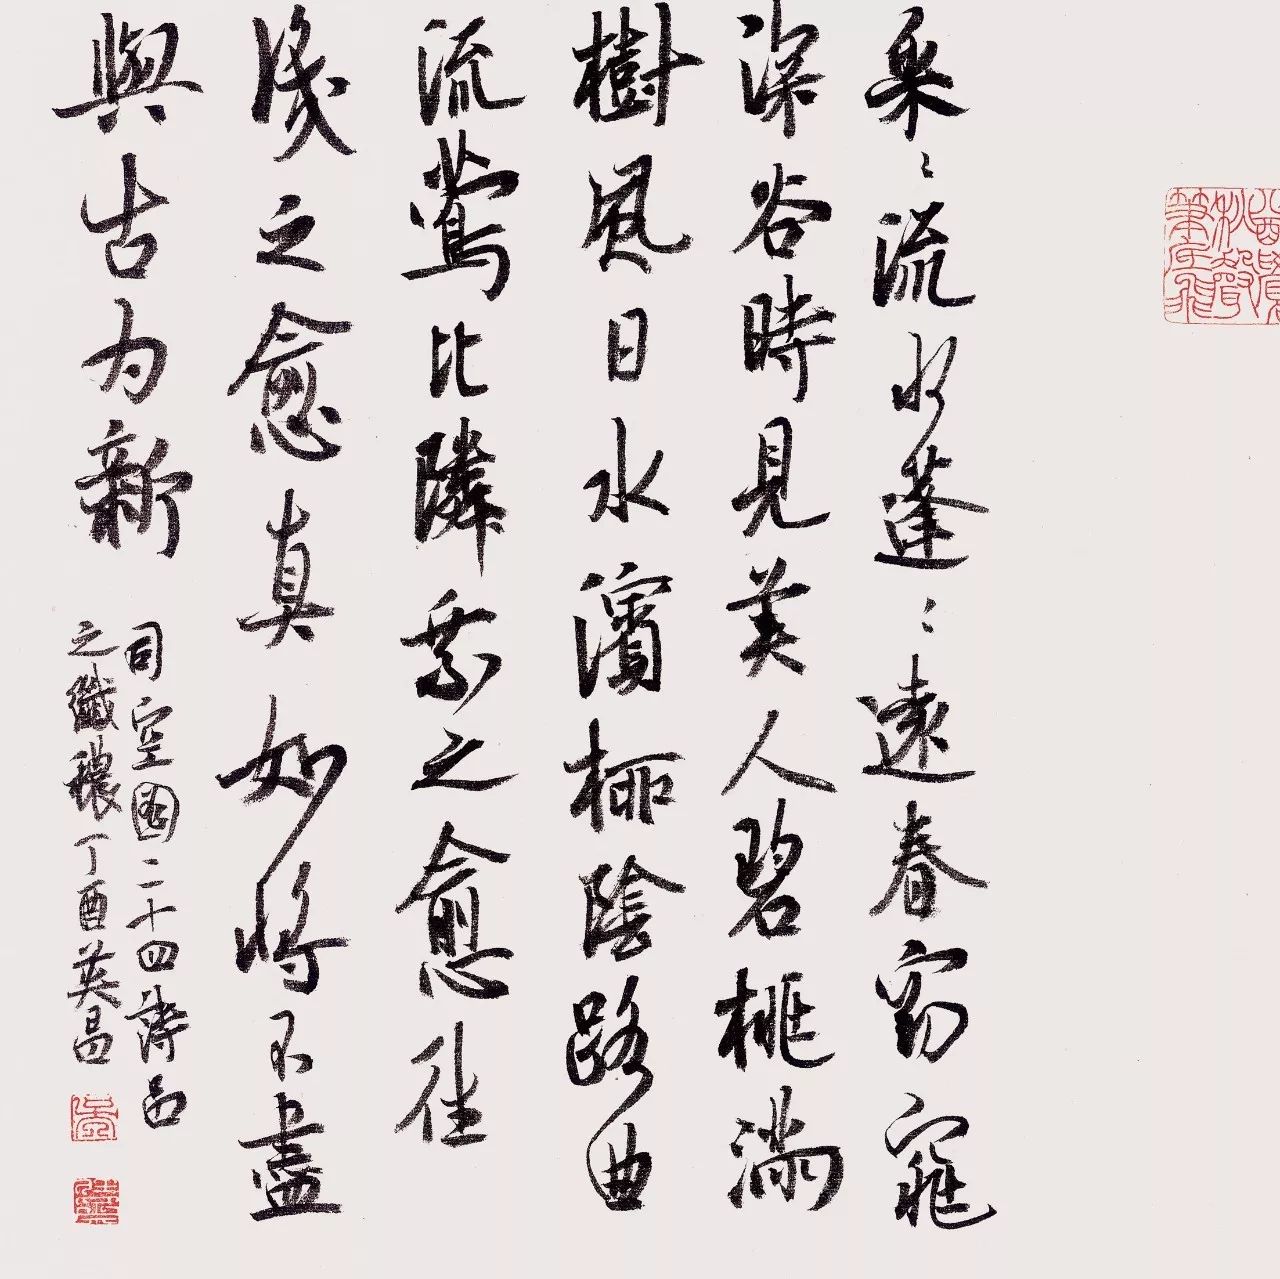 采〻流水蓬〻遠春窈窕
深谷時見美人碧桃滿
樹風日水濱柳陰路曲
流鶯比隣乘之愈往
識之愈真如將不盡
與古为新
司空圖二十四詩品
之纖穠丁酉英昌